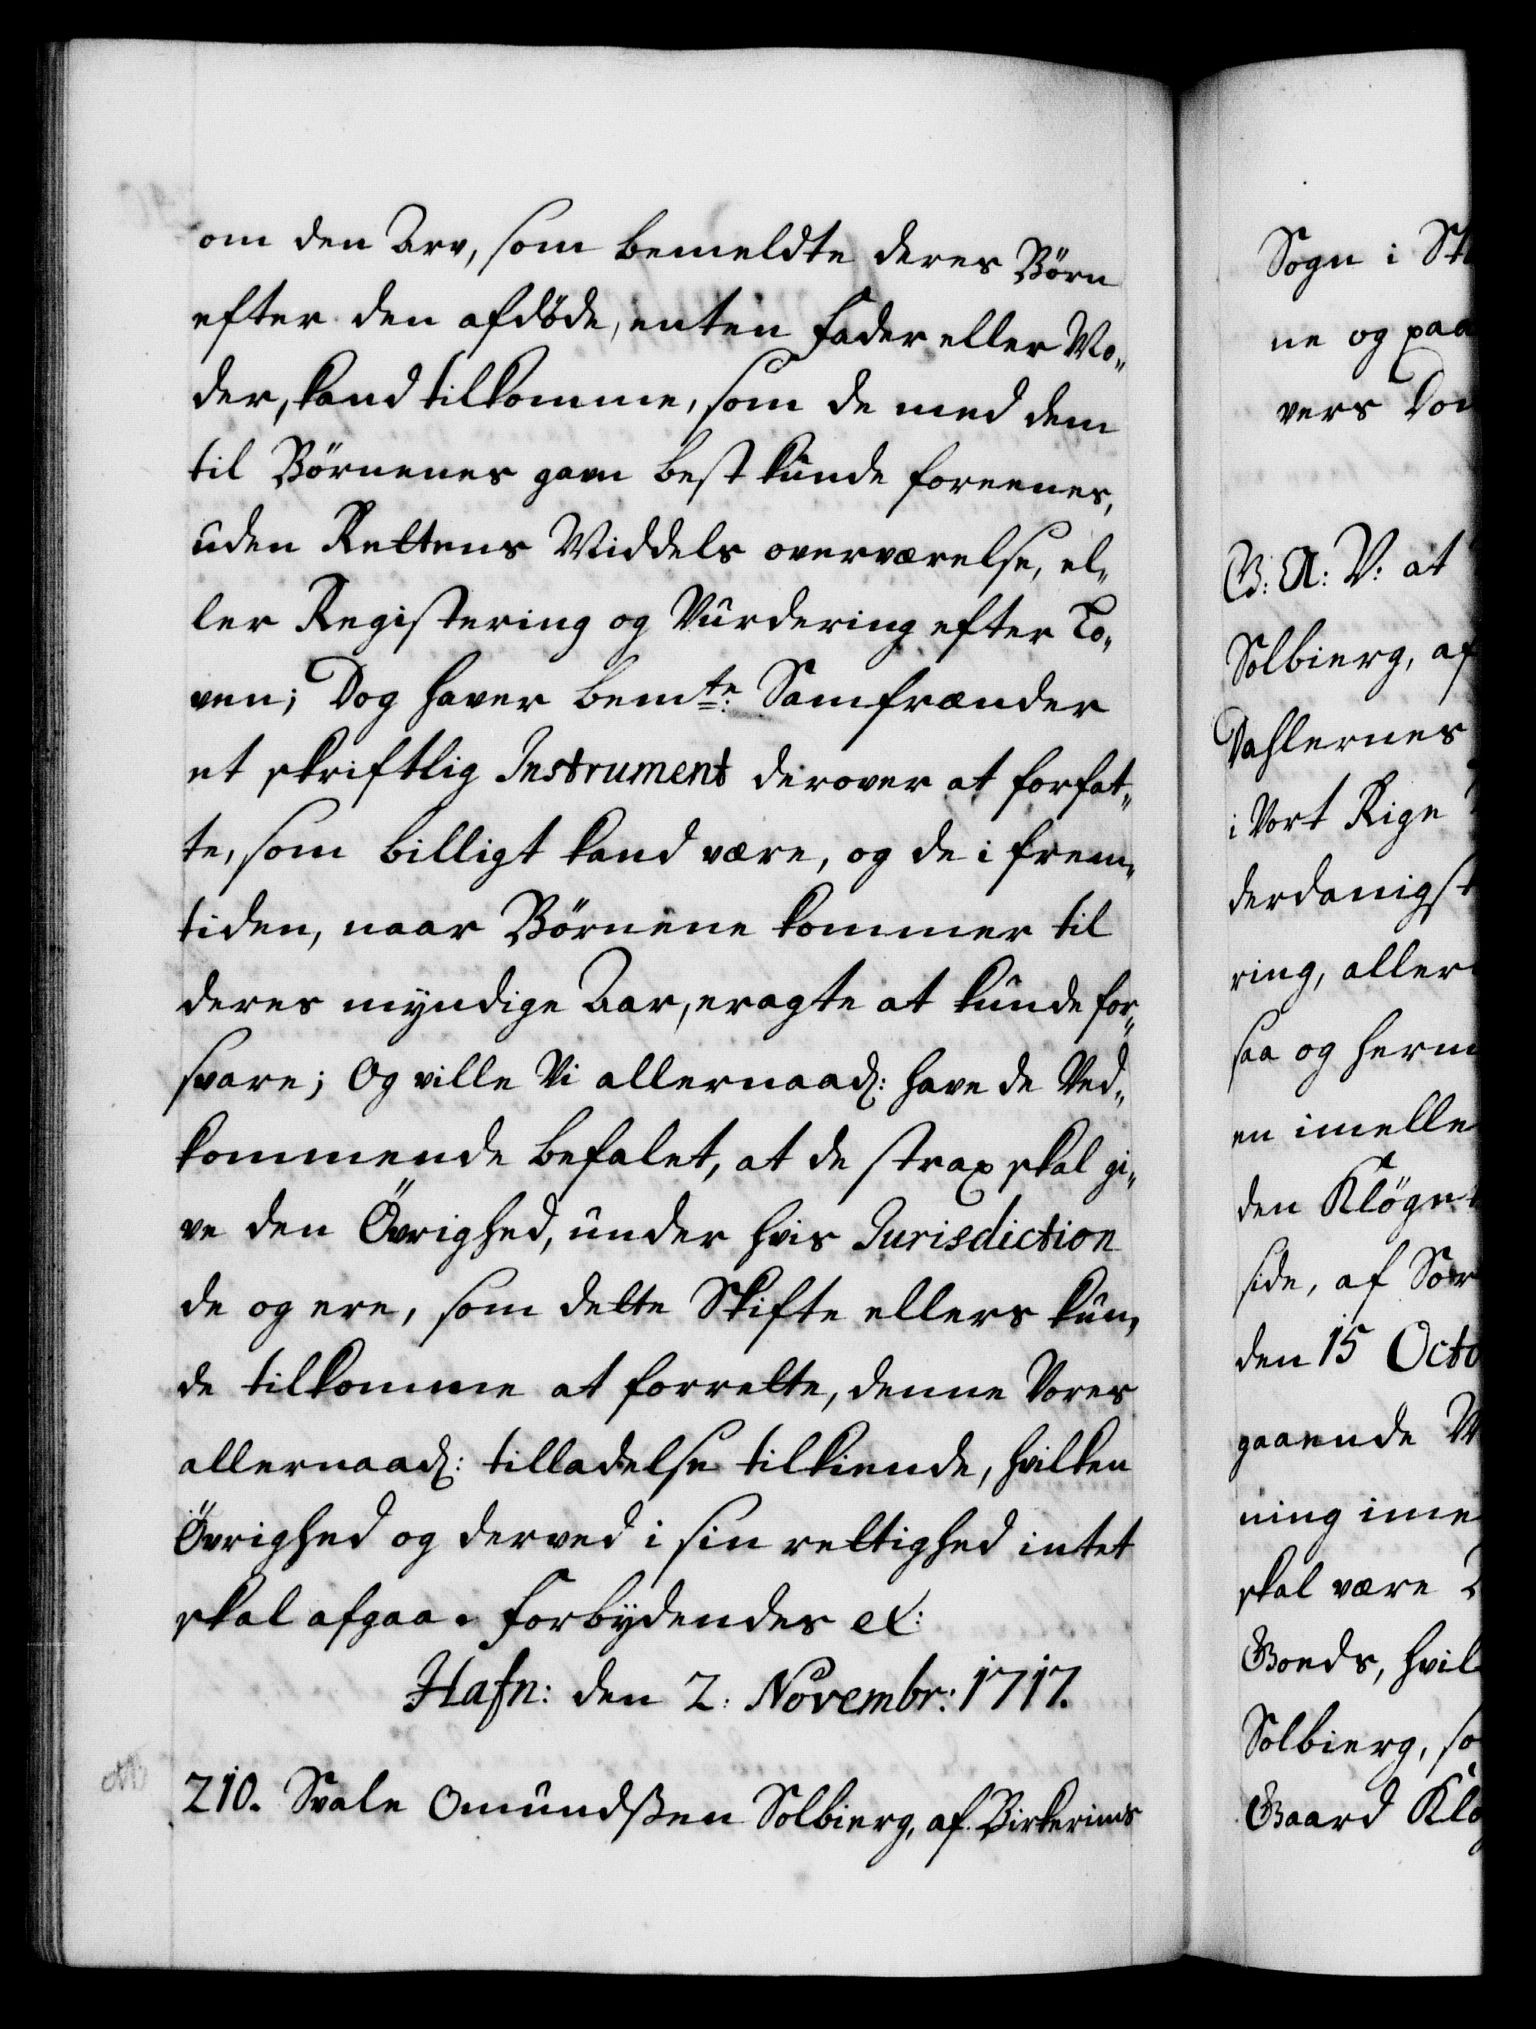 om den Arv, som bemeldte deres Börn
efter den afdöde, enten Fader eller Mo„
der, kand tilkomme, som de med dem
til Börnenes gavn best kunde foreenes,
uden Rettens Middels overværelse, el„
ler Registering og Vurdering efter Lo„
ven; Dog haver bemte: Samfrænder
et skriftlig Instrument derover at forfat„
te, som billigt kand være, og de i frem„
tiden, naar Börnene kommer til
deres myndige Aar, eragte at kunde for„
svare; Og ville Vi allernaad: have de Ved„
kommende befalet, at de strax skal gi„
ve den Övrighed, under hvis Jurisdiction
de og ere, som dette Skifte ellers kun„
de tilkomme at forrette, denne Vores
allernaad: tilladelse tilkiende, hvilken
Övrighed og derved i sin rettighed intet
skal afgaa. Forbydendes etc:
Hafn: den 2: Novembr: 1717.
210. Svale Omundsen Solbierg, af Birkerims
Sogn i St
ne og paa
vers Dom
G: A: V: at
Solbierg, af
Dahlernes
i Vort Rige
derdanigst
ring, aller
saa og herm
en imelle
den Klögn
side, af Sör
den 15 Octo
gaaende M
ning ime
skal være
Goeds, hvil
Solbierg, so
Gaard Klö